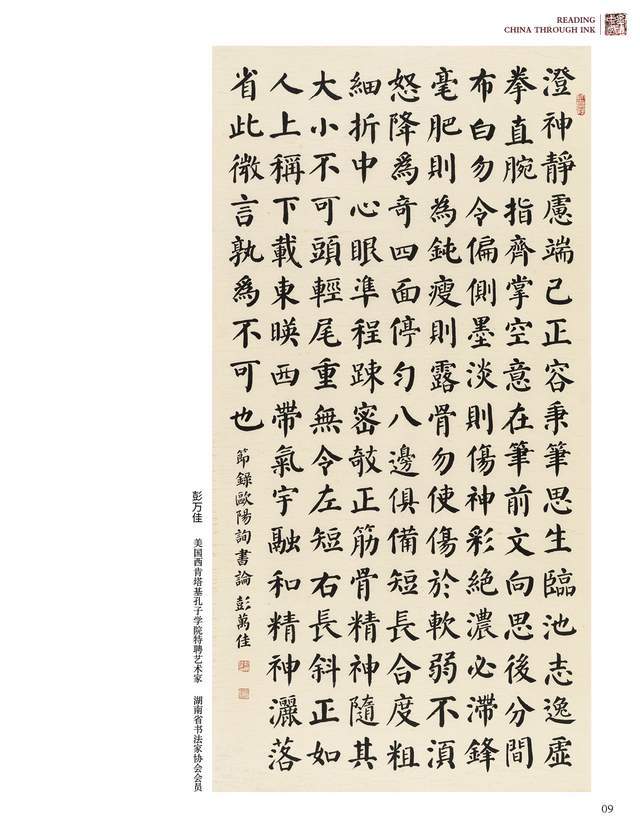 READING
CHINA THROUGH INK
澄神靜慮端己正容秉筆思生臨池志逸虛
拳直腕指齊掌空意在筆前文向思後分間
布白勿令偏側墨淡則傷神彩絕濃必滯鋒
毫肥則為鈍瘦則露骨勿使傷於軟弱不湏
怒降爲奇四面停勻八邊俱備短長合度粗
細折中心眼準程踈密敧正筋骨精神隨其
大小不可頭輕尾重無令左短右長斜正如
人上稱下載東暎西帶氣宇融和精神灑落
省此微言孰爲不可也
節錄歐陽詢書論 彭萬佳
彭万佳 美国西肯塔基孔子学院特聘艺术家 湖南省书法家协会会员
09